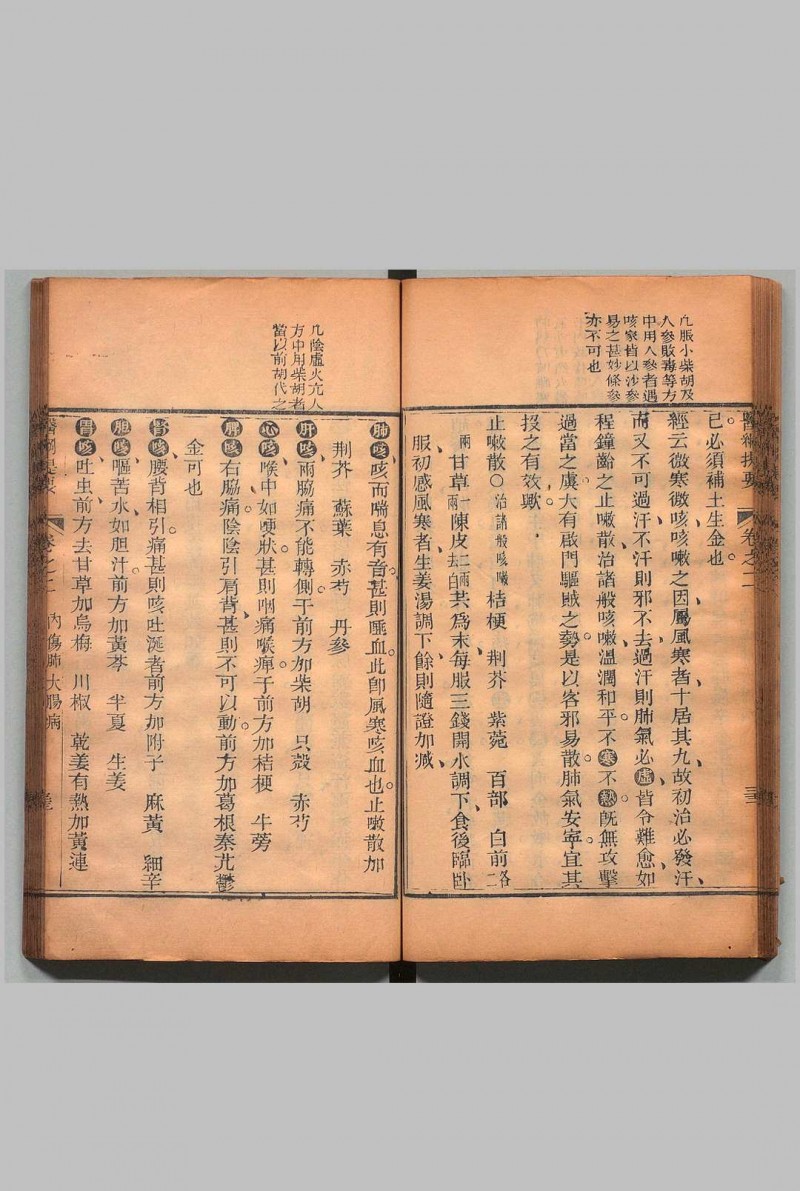 凢服小柴胡及
人參敗毒等方
中用人參者遇
咳家皆以沙參
易之甚妙條參
亦不可也
醫綱提要 卷之二
已必須補土生金也
經云微寒微咳咳嗽之因屬風寒者十居其九故初治必發汗
而又不可過汗不汗則邪不去過汗則肺氣必虛皆令難愈如
程鐘齡之止嗽散治諸般咳嗽溫潤和平不寒不熱旣無攻擊
過當之虞大有啟門驅賊之勢是以客邪易散肺氣安寧宜其
投之有效歟
止嗽散○治諸般咳嗽 桔梗 荆芥 紫菀 百部 白前各二
兩 甘草一兩 陳皮二兩去白 共爲末每服三錢開水調下食後臨卧
服初感風寒者生姜湯調下餘則隨證加減
凢陰虛火亢人
方中用柴胡者
當以前胡代之
肺咳咳而喘息有音甚則唾血此卽風寒咳血也止嗽散加
荆芥 蘇葉 赤芍 丹參
肝咳兩脇痛不能轉側于前方加柴胡 只殼 赤芍
心咳喉中如哽狀甚則咽痛喉痺于前方加桔梗 牛蒡
脾咳右脇痛陰陰引肩背甚則不可以動前方加葛根秦艽鬱
金可也
腎咳腰背相引痛甚則咳吐涎者前方加附子 麻黃 細辛
胆咳嘔苦水如胆汁前方加黃芩 半夏 生姜
胃咳吐虫前方去甘草加烏梅 川椒 乾姜有熱加黃連
醫綱提要 卷之二 內傷肺大腸病